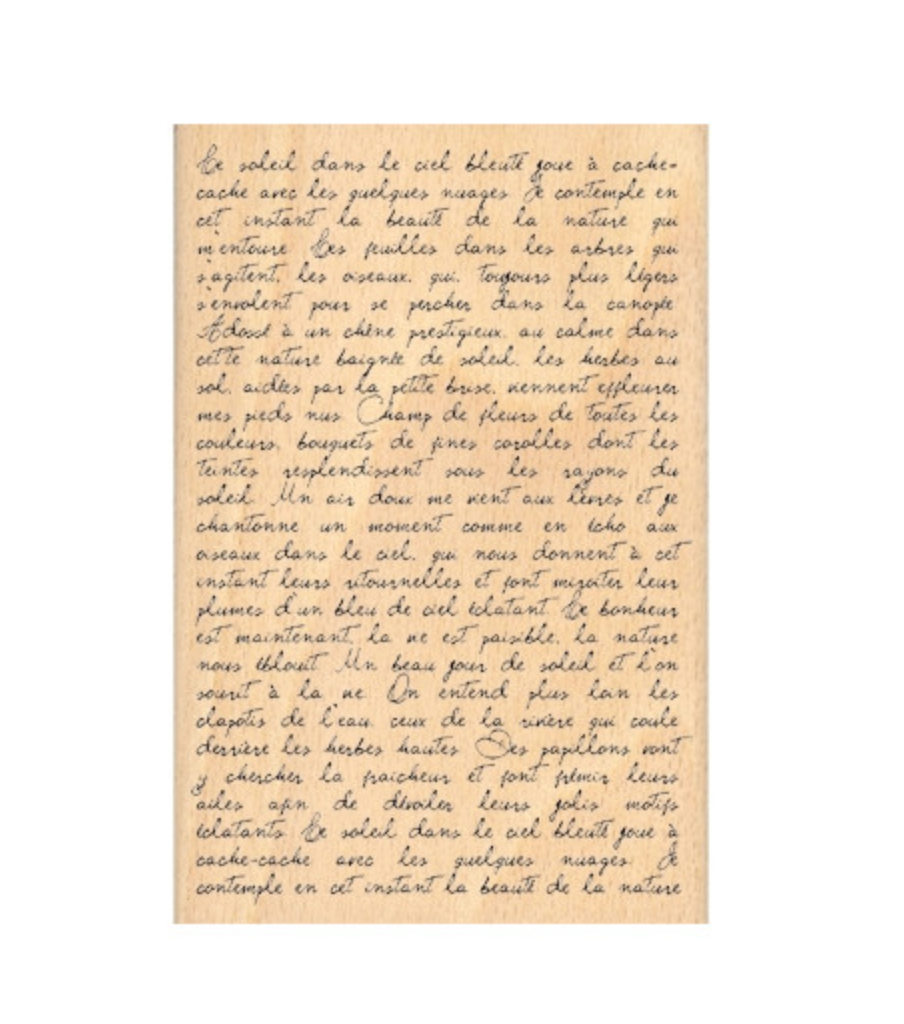 Le soleil dans le ciel bleuté joue à cache-
cache avec les quelques nuages. Je contemple en
cet instant la beauté de la nature qui
m'entoure. Les feuilles dans les arbres qui
s'agitent, les oiseaux, qui, toujours plus légers
s'envolent pour se percher dans la canopée.
Adossé à un chêne prestigieux, au calme dans
cette nature baignée de soleil, les herbes au
sol, aidées par la petite brise, viennent effleurer
mes pieds nus. Champ de fleurs de toutes les
couleurs, bouquets de fines corolles dont les
teintes resplendissent sous les rayons du
soleil. Un air doux me vient aux lèvres et je
chantonne un moment comme en écho aux
oiseaux dans le ciel, qui nous donnent à cet
instant leurs ritournelles et font miroiter leur
plumes d'un bleu de ciel éclatant. Le bonheur
est maintenant, la vie est paisible, la nature
nous éblouit. Un beau jour de soleil et l'on
sourit à la vie. On entend plus loin les
clapotis de l'eau, ceux de la rivière qui coule
derrière les herbes hautes. Des papillons vont
y chercher la fraicheur et font frémir leurs
ailes afin de dévoiler leurs jolis motifs
éclatants. Le soleil dans le ciel bleuté joue à
cache-cache avec les quelques nuages. Je
contemple en cet instant la beauté de la nature